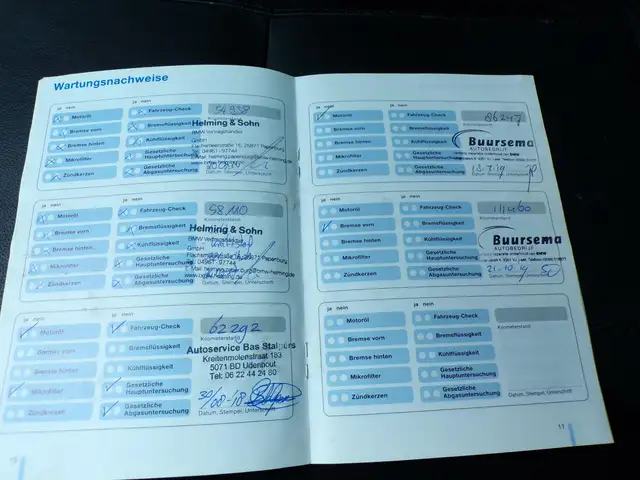 Wartungsnachweise
ja nein ja nein
Motoröl Fahrzeug-Check 54 938
Bremse vorn Bremsflüssigkeit Helming & Sohn
BMW Vertragshändler
GmbH
Bremse hinten Kühlflüssigkeit
Tel. 04961-97744
Mikrofilter Gesetzliche Hauptuntersuchung
Zündkerzen Gesetzliche Abgasuntersuchung Datum, Stempel, Unterschrift
ja nein ja nein
Motoröl Fahrzeug-Check 58 110
Kilometerstand
Bremse vorn Bremsflüssigkeit Helming & Sohn
BMW Vertragshändler
GmbH
Bremse hinten Kühlflüssigkeit
Tel. 04961-97744
Mikrofilter Gesetzliche Hauptuntersuchung
Zündkerzen Gesetzliche Abgasuntersuchung
ja nein ja nein
Motoröl Fahrzeug-Check 62292
Kilometerstand
Bremse vorn Bremsflüssigkeit Autoservice Bas Stalpers
Kreitenmolenstraat 183
Bremse hinten Kühlflüssigkeit 5071 BD Udenhout
Tel: 06 22 44 24 80
Mikrofilter Gesetzliche Hauptuntersuchung
Zündkerzen Gesetzliche Abgasuntersuchung Datum, Stempel, Unterschrift
ja nein ja nein
Motoröl Fahrzeug-Check 86247
Kilometerstand
Bremse vorn Bremsflüssigkeit
Bremse hinten Kühlflüssigkeit Buursema
AUTOBEDRIJF
Mikrofilter Gesetzliche Hauptuntersuchung
Zündkerzen Gesetzliche Abgasuntersuchung Datum, Stempel, Unterschrift
ja nein ja nein
Motoröl Fahrzeug-Check 111460
Kilometerstand
Bremse vorn Bremsflüssigkeit
Bremse hinten Kühlflüssigkeit Buursema
AUTOBEDRIJF
Mikrofilter Gesetzliche Hauptuntersuchung
21-10-19
Zündkerzen Gesetzliche Abgasuntersuchung Datum, Stempel, Unterschrift
ja nein ja nein
Motoröl Fahrzeug-Check
Kilometerstand
Bremse vorn Bremsflüssigkeit
Bremse hinten Kühlflüssigkeit
Mikrofilter Gesetzliche Hauptuntersuchung
Zündkerzen Gesetzliche Abgasuntersuchung Datum, Stempel, Unterschrift
11